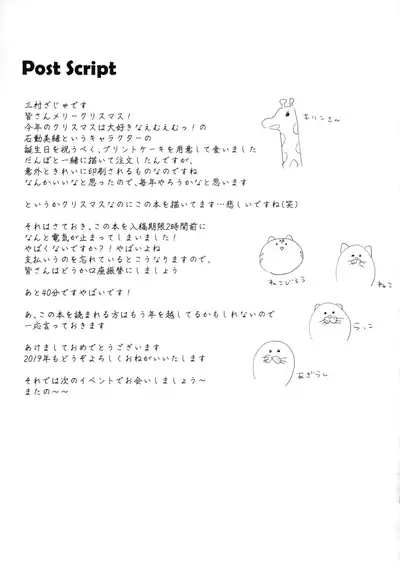 Post Script
三村ざじゃです
皆さんメリークリスマス！
今年のクリスマスは大好きなえむえむっ！の
石動美緒というキャラクターの
誕生日を祝うべく、プリントケーキを用意して食いました
だんぼと一緒に描いて注文したんですが、
意外ときれいに印刷されるものなのですね
なんかいいなと思ったので、毎年やろうかなと思います
というかクリスマスなのにこの本を描いてます…悲しいですね(笑)
それはさておき、この本を入稿期限2時間前に
なんと電気が止まってしまいました！
やばくないですか？！やばいよね
支払いうのを忘れているとこうなりますので、
皆さんはどうか口座振替にしましょう
あと40分ですやばいです！
あ、この本を読まれる方はもう年を越してるかもしれないので
一応言っておきます
あけましておめでとうございます
2019年もどうぞよろしくおねがいいたします
それでは次のイベントでお会いしましょう～
またの～～
きりんさん
ねこ
らっこ
あざらし